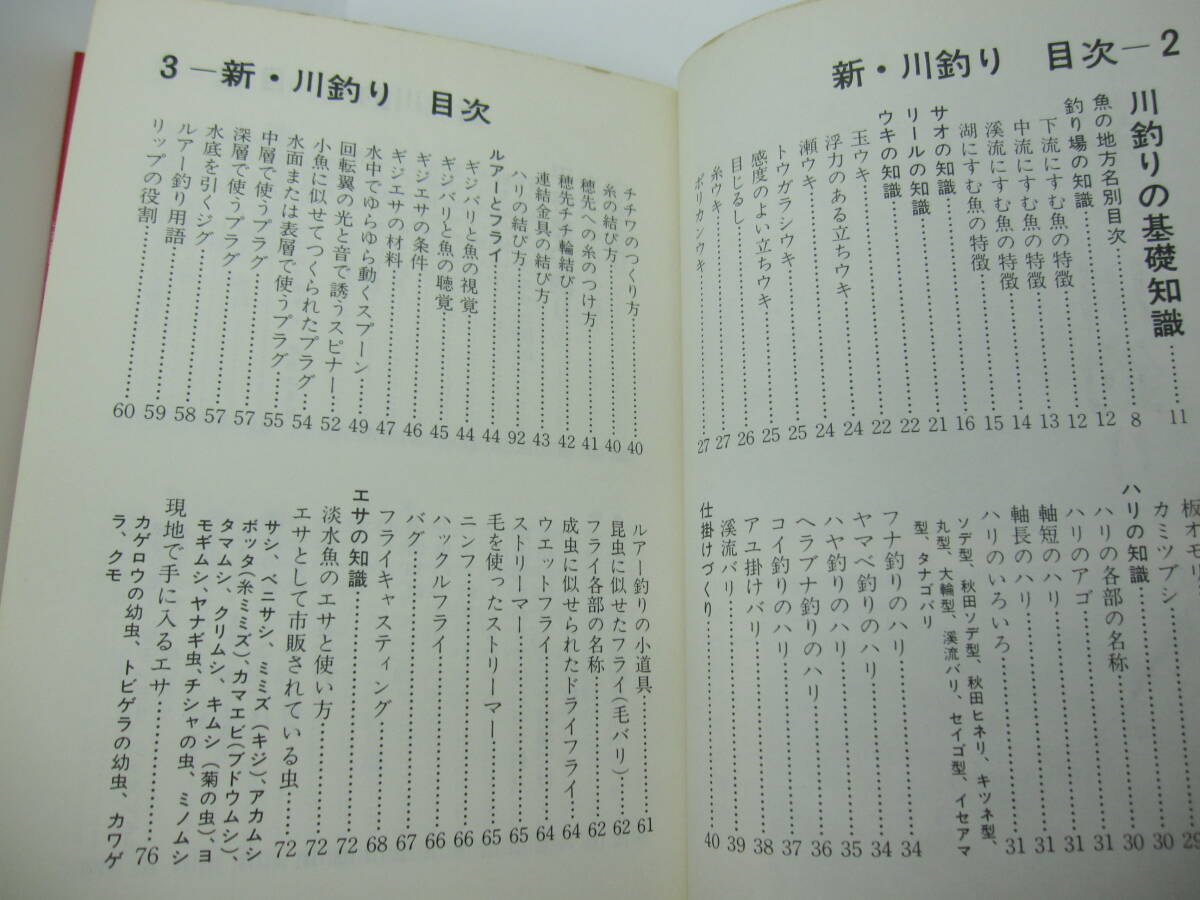 新・川釣り 目次―2
川釣りの基礎知識……11
魚の地方名別目次……8
釣り場の知識……12
下流にすむ魚の特徴……12
中流にすむ魚の特徴……13
渓流にすむ魚の特徴……14
湖にすむ魚の特徴……15
サオの知識……16
リールの知識……21
ウキの知識……22
玉ウキ……22
浮力のある立ちウキ……24
瀬ウキ……24
トウガラシウキ……25
感度のよい立ちウキ……25
目じるし……26
糸ウキ……27
ポリカンウキ……27
板オモリ……29
カミツブシ……30
ハリの知識……30
ハリの各部の名称……31
ハリのアゴ……31
軸短のハリ……31
軸長のハリ……31
ハリのいろいろ……34
ソデ型、秋田ソデ型、秋田ヒネリ、キツネ型、
丸型、大輪型、渓流バリ、セイゴ型、イセアマ
型、タナゴバリ
フナ釣りのハリ……34
ヤマベ釣りのハリ……35
ハヤ釣りのハリ……36
ヘラブナ釣りのハリ……37
コイ釣りのハリ……37
アユ掛けバリ……38
渓流バリ……39
仕掛けづくり……40
3―新・川釣り 目次
チチワのつくり方……40
糸の結び方……40
穂先への糸のつけ方……41
穂先チチ輪結び……42
連結金具の結び方……43
ハリの結び方……92
ルアーとフライ……44
ギジバリと魚の視覚……44
ギジバリと魚の聴覚……45
ギジエサの条件……46
ギジエサの材料……47
水中でゆらゆら動くスプーン……49
回転翼の光と音で誘うスピナー……52
小魚に似せてつくられたプラグ……54
水面または表層で使うプラグ……55
中層で使うプラグ……57
深層で使うプラグ……57
水底を引くジグ……57
ルアー釣り用語……58
リップの役割……59
60
ルアー釣りの小道具……61
昆虫に似せたフライ(毛バリ)……62
フライ各部の名称……62
成虫に似せられたドライフライ……64
ウエットフライ……64
ストリーマー……65
毛を使ったストリーマー……65
ニンフ……66
ハックルフライ……66
バグ……67
フライキャスティング……68
エサの知識……72
淡水魚のエサと使い方……72
エサとして市販されている虫……72
サシ、ベニサシ、ミミズ(キジ)、アカムシ
ボッタ(糸ミミズ)、カマエビ(ブドウムシ)、
タマムシ、クリムシ、キムシ(菊の虫)、ヨ
モギムシ、ヤナギ虫、チシャの虫、ミノムシ
現地で手に入るエサ……76
カゲロウの幼虫、トビゲラの幼虫、カワゲ
ラ、クモ